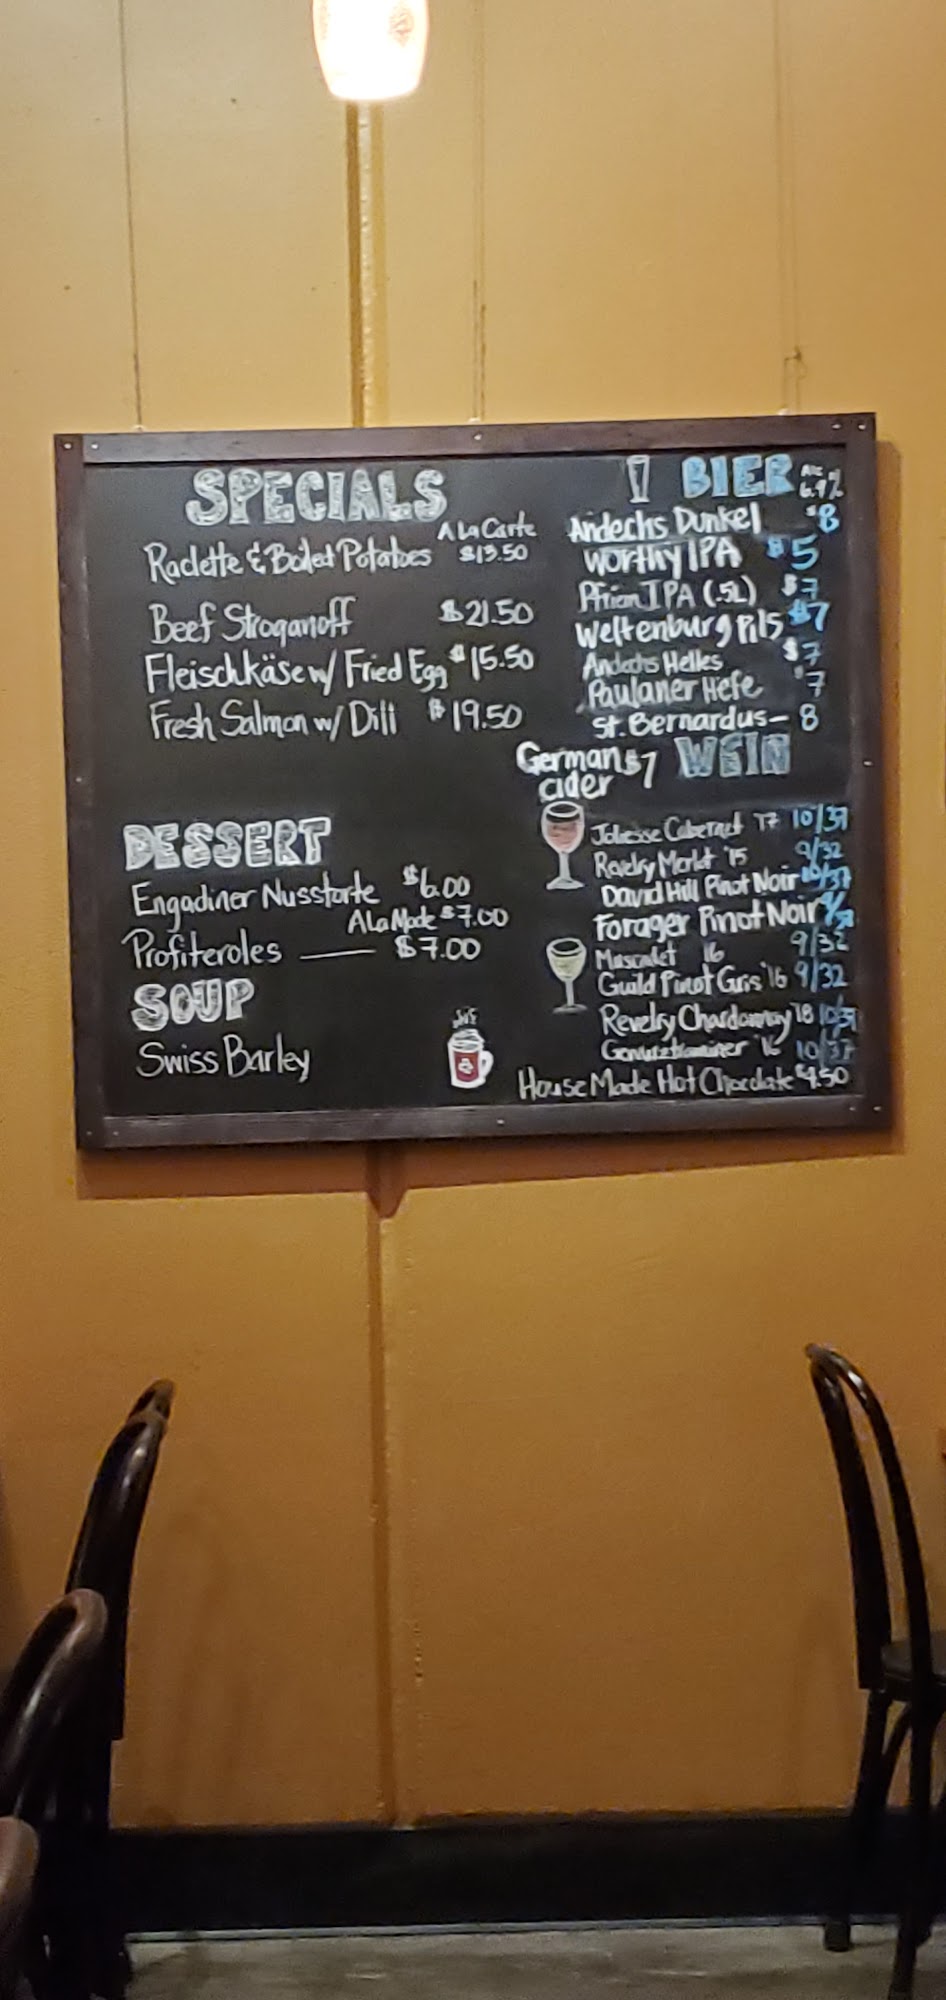 SPECIALS
A La Carte
Raclette & Boiled Potatoes $13.50
Beef Stroganoff $21.50
Fleischkäse w/ Fried Egg $15.50
Fresh Salmon w/ Dill $19.50
DESSERT
Engadiner Nusstorte $6.00
A La Mode $7.00
Profiteroles — $7.00
SOUP
Swiss Barley
BIER Alc
6.9%
Andechs Dunkel $8
Worthy IPA $5
IPA (.5L) $7
Weltenburg Pils $7
Andechs Helles $7
Paulaner Hefe $7
St. Bernardus — 8
German $7
cider
WEIN
Cabernet '17 10/37
Revelry Merlot '15 9/32
David Hill Pinot Noir 10/37
Forager Pinot Noir
Muscadet 16 9/32
Guild Pinot Gris '16 9/32
Revelry Chardonnay '18 10/37
Gewurztraminer '16 10/37
House Made Hot Chocolate $4.50